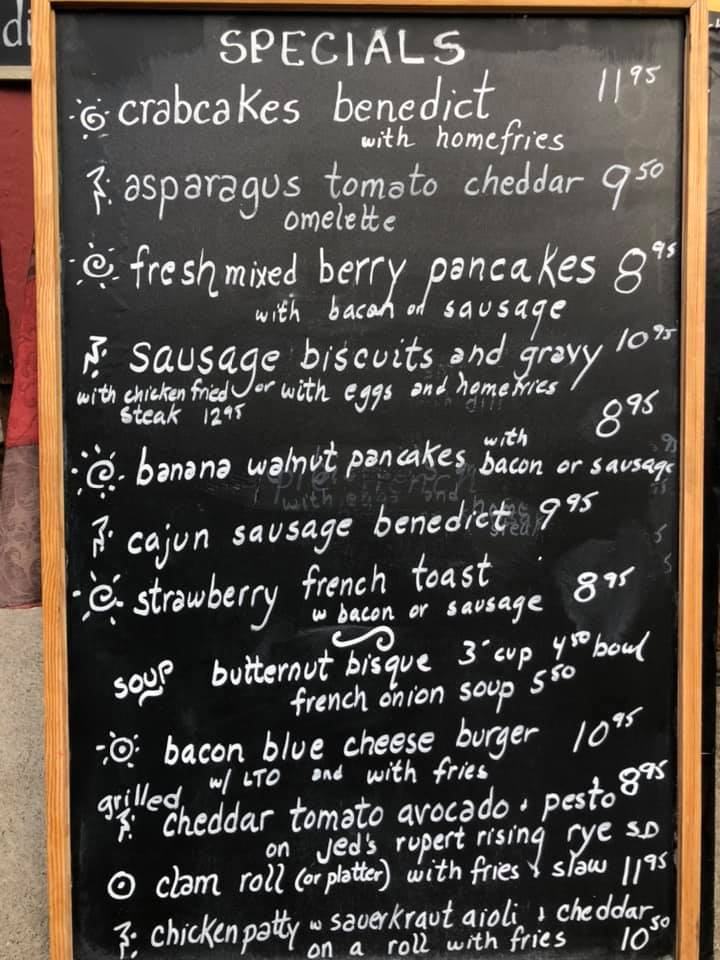 di
SPECIALS
crabcakes benedict 11 95
with homefries
asparagus tomato cheddar 9 50
omelette
fresh mixed berry pancakes 8 95
with bacon or sausage
sausage biscuits and gravy 10 95
with chicken fried or with eggs and homefries
steak 12 95
8 95
banana walnut pancakes with bacon or sausage
cajun sausage benedict 9 95
strawberry french toast 8 95
w bacon or sausage
soup butternut bisque 3 cup 4 50 bowl
french onion soup 5 50
bacon blue cheese burger 10 95
w/ LTO and with fries
grilled cheddar tomato avocado & pesto 8 95
on Jed's rupert rising rye SD
clam roll (or platter) with fries & slaw 11 95
chicken patty w sauerkraut aioli & cheddar
on a roll with fries 10 50